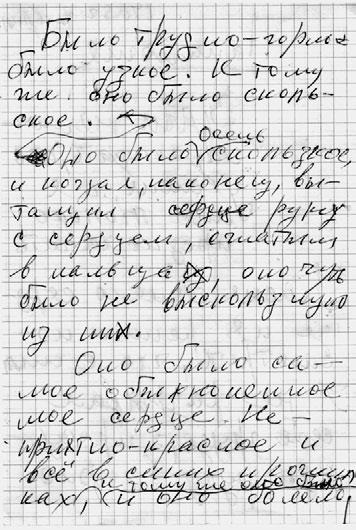 Было трудно – горло
было узкое. К тому
же оно было сколь-
ское.
Очень
Оно было скользкое,
и когда я, наконец, вы-
тащил сердце руку
с сердцем, сжатым
в пальцах, оно чуть
было не выскользнуло
из них.
Оно было са-
мое обыкновенное
мое сердце. Не-
приятно-красное и
всё в синих прожил-
и тому же оно было
ках, и оно болело,